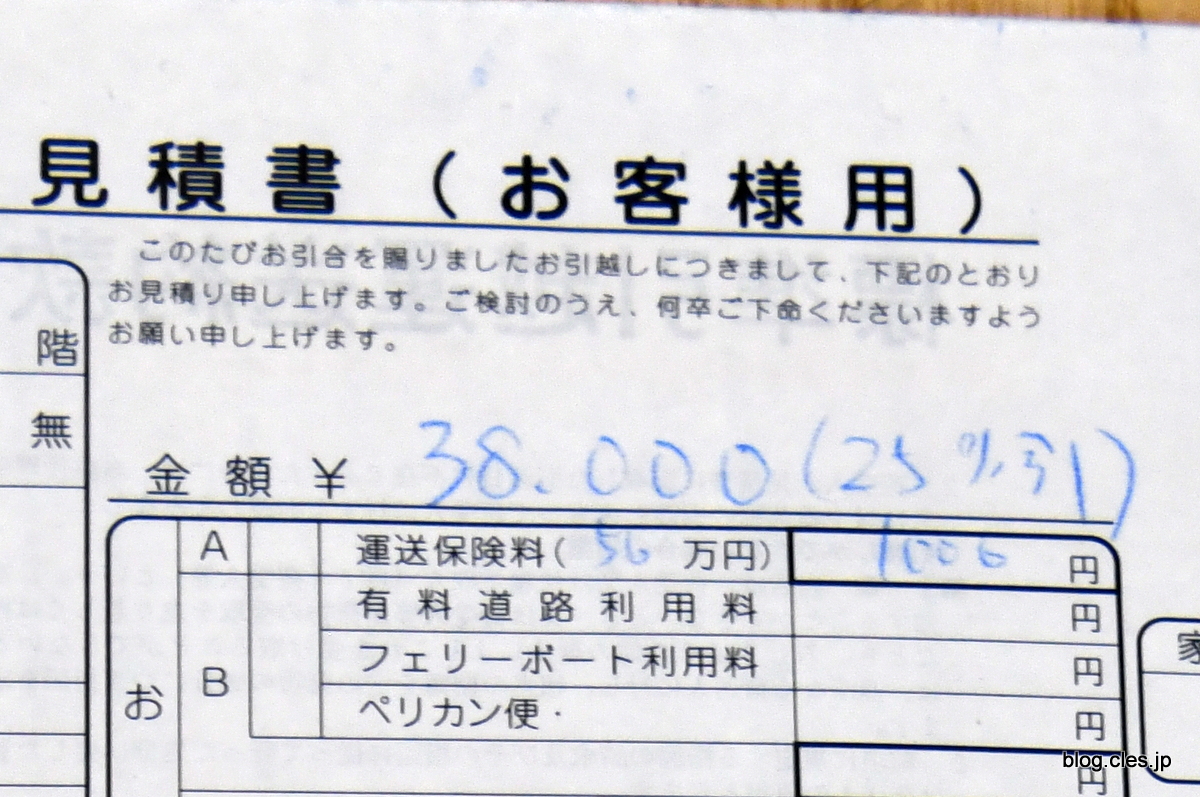 見積書(お客様用)
このたびお引合を賜りましたお引越しにつきまして、下記のとおり
お見積り申し上げます。ご検討のうえ、何卒ご下命くださいますよう
お願い申し上げます。
階
無
金額 ¥ 38.000(25%引)
A 運送保険料( 50 万円) 1000 円
有料道路利用料 円
B フェリーボート利用料 円
ペリカン便・ 円
お
円
家
blog.cles.jp